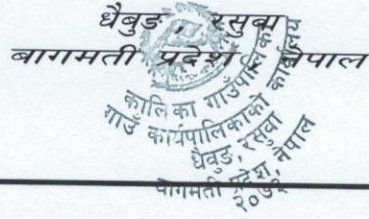 धैबुङ, रसुवा
बागमती प्रदेश नेपाल
कालिका गाउँपालिका
गाउँ कार्यपालिकाको कार्यालय
धैबुङ, रसुवा
बागमती प्रदेश, नेपाल